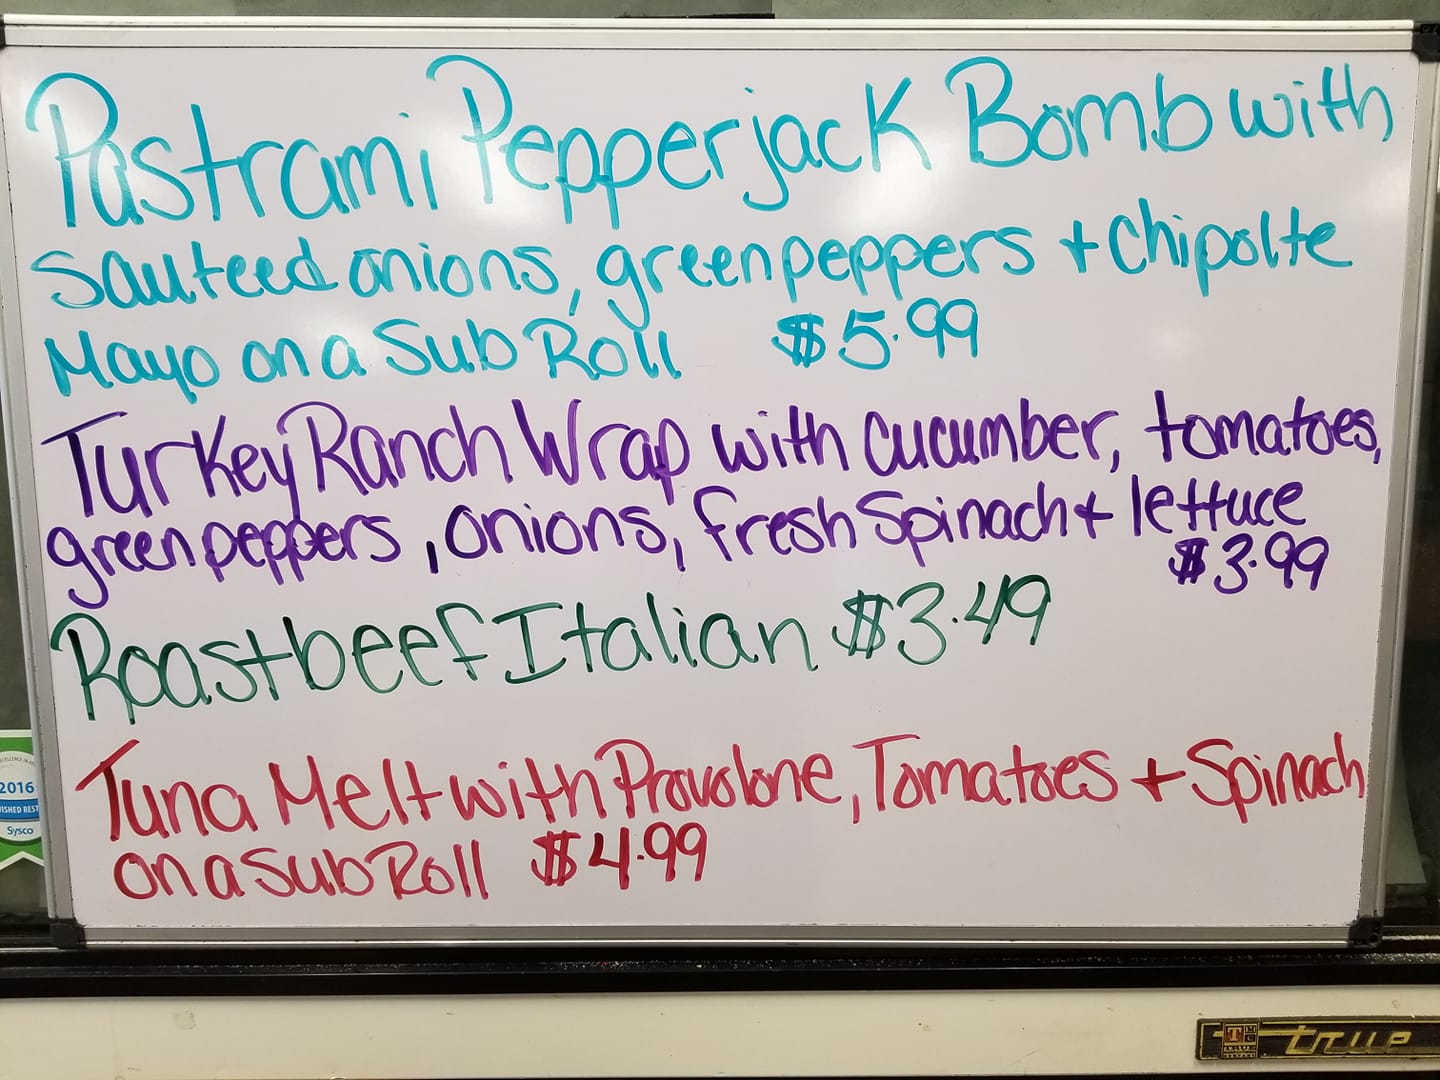 Pastrami Pepperjack Bomb with
sauteed onions, green peppers + Chipolte
Mayo on a Sub Roll $5.99
Turkey Ranch Wrap with cucumber, tomatoes,
green peppers, onions, fresh Spinach + lettuce
$3.99
Roastbeef Italian $3.49
Tuna Melt with Provolone, Tomatoes + Spinach
on a Sub Roll $4.99
2016
Sysco
true